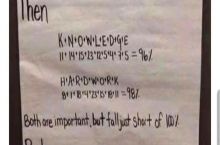 Then
K+N+O+W+L+E+D+G+E
11+14+15+23+12+5+4+7+5 = 96%
H+A+R+D+W+O+R+K
8+1+18+4+23+15+18+11 = 98%
Both are important, but fall just short of 100%